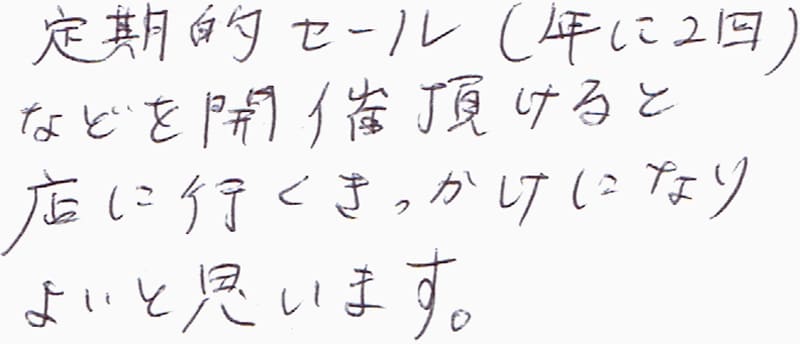 定期的セール(年に2回)
などを開催頂けると
店に行くきっかけになり
よいと思います。